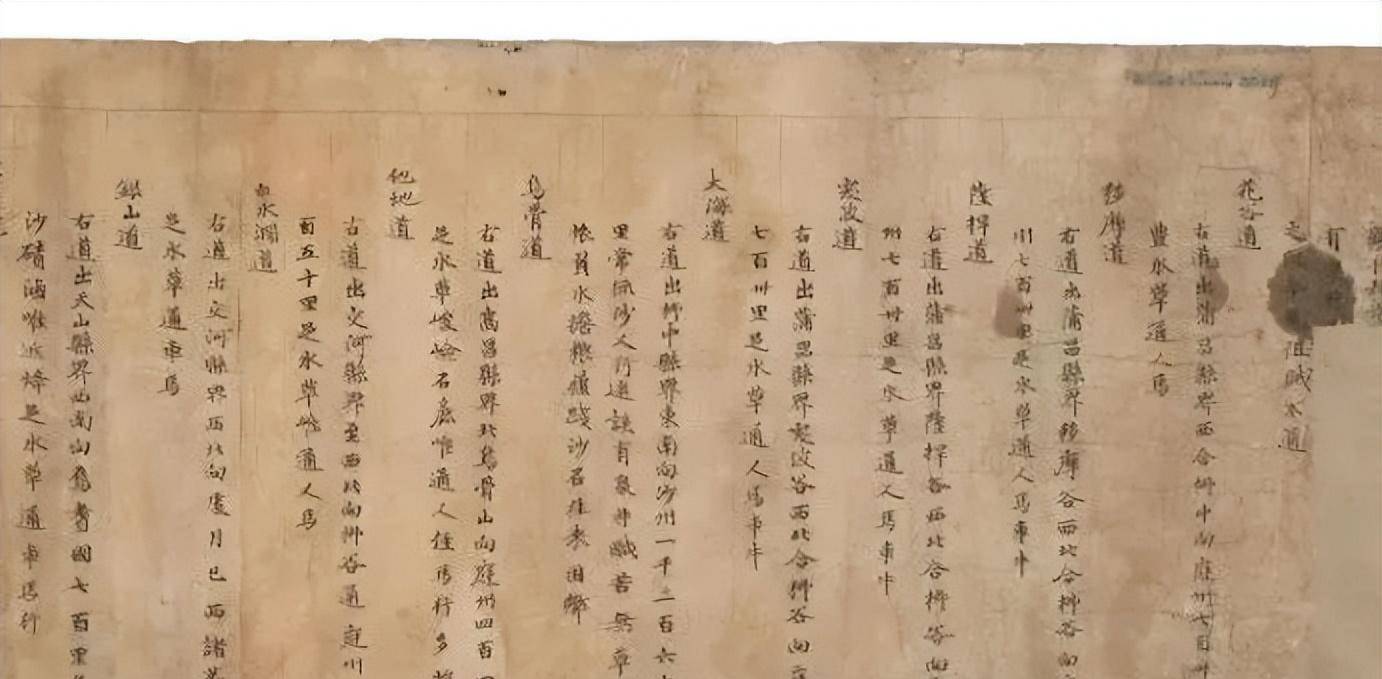 道
行
阻賊不通
花谷道
右道出蒲昌縣界西合柳中向庭州七百卅
豊水草通人馬
移摩道
右道出蒲昌縣界移摩谷西北合柳谷向
州七百卌里足水草通人馬車牛
薩捍道
右道出蒲昌縣界薩捍谷西北合柳谷向
州七百卅里足水草通人馬車牛
突波道
右道出蒲昌縣界突波谷西北合柳谷向
七百卅里足水草通人馬車牛
大海道
右道出柳中縣界東南向沙州一千三百六
里常流沙人行迷誤有泉井鹹苦無草
行旅負水擔粮履踐沙石往來困弊
烏骨道
右道出高昌縣界北烏骨山向庭州四百
足水草峻嶮石麁唯通人徑馬行多
他地道
右道出交河縣界至西北向柳谷通庭州
百五十里足水草唯通人馬
白水澗道
右道出交河縣界西北向處月已西諸蕃
足水草通車馬
銀山道
右道出天山縣界西南向焉耆國七百里
沙磧滷唯近烽足水草通車馬行